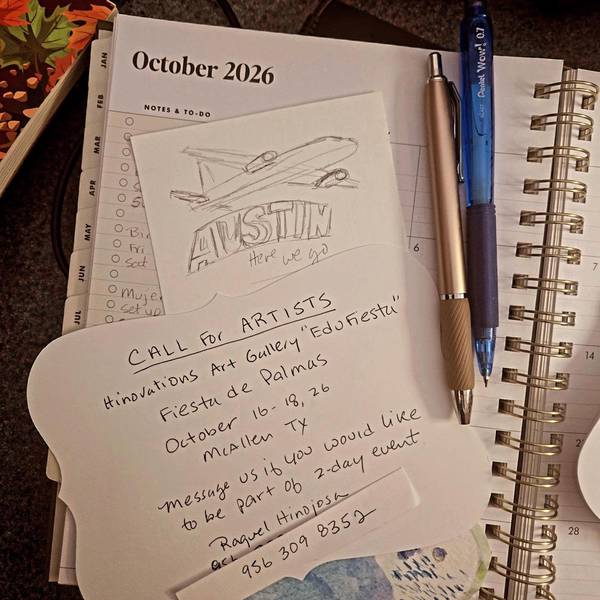 October 2026
NOTES & TO-DO
JAN
FEB
MAR
APR
MAY
JUN
JUL
Fri
Sat
Muje
set up
AUSTIN
Here we go
Pentel Wow! 0.7
6
7
28
CALL For ARTISTS
Hinovations Art Gallery "EduFiesta"
Fiesta de Palmas
October 16-18, 26
McAllen TX
Message us if you would like
to be part of 2-day event
Raquel Hinojosa
956 309 8352